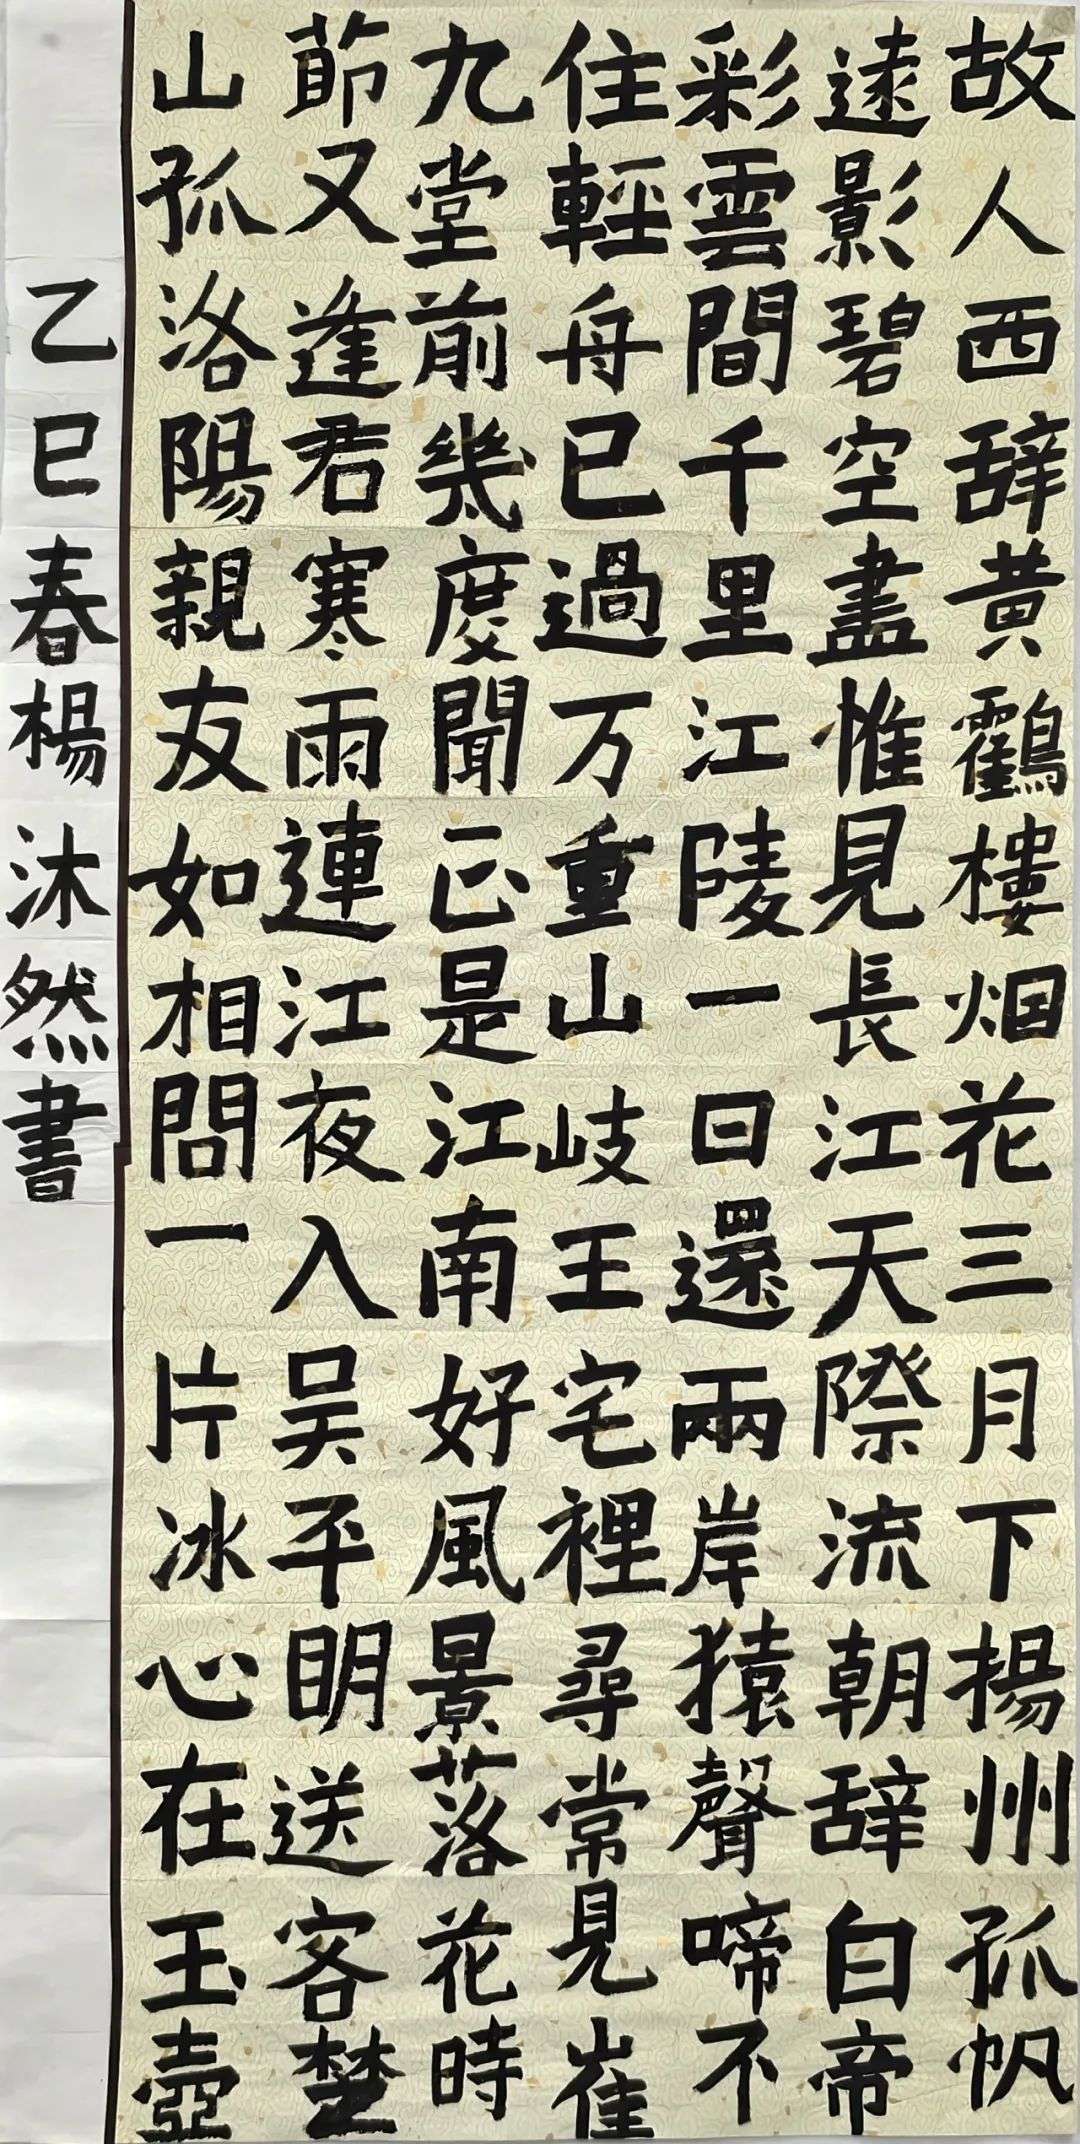 故人西辞黄鶴樓烟花三月下揚州孤帆
遠影碧空盡惟見長江天際流朝辞白帝
彩雲間千里江陵一日還兩岸猿聲啼不
住輕舟已過万重山岐王宅裡尋常見崔
九堂前幾度聞正是江南好風景落花時
節又逢君寒雨連江夜入吴平明送客楚
山孤洛陽親友如相問一片冰心在玉壺
乙巳春楊沐然書